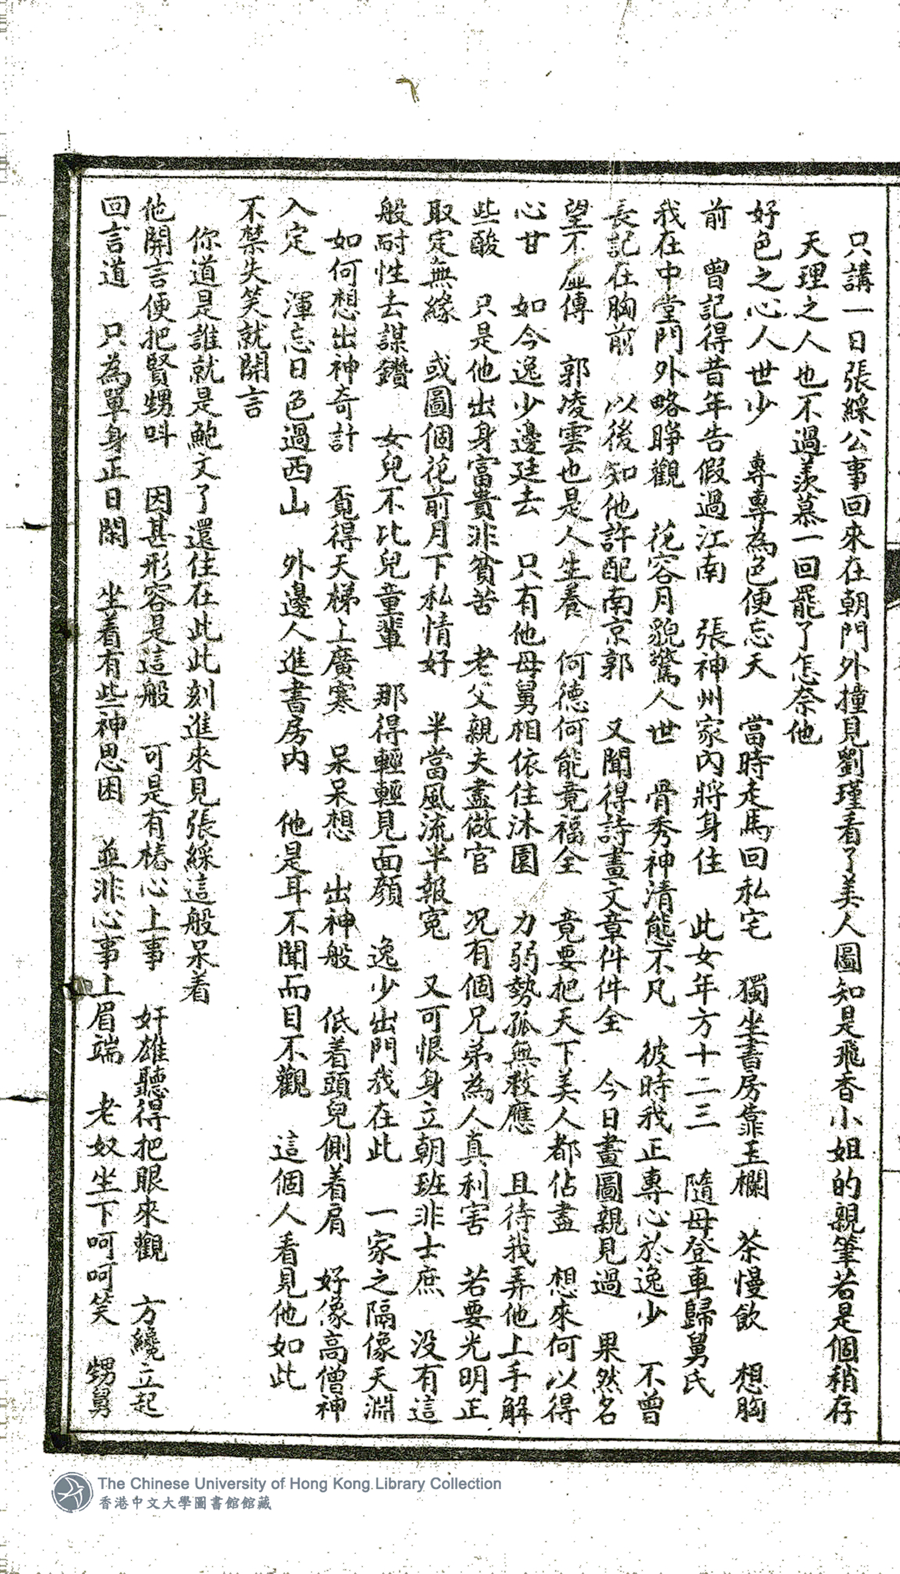 只講一日張綵公事回來在朝門外撞見劉瑾看了美人圖知是飛香小姐的親筆若是個稍存
天理之人也不過羨慕一回罷了怎奈他
好色之心人世少　專專為色便忘天　當時走馬回私宅　獨坐書房靠玉欄　茶慢飲　想胸
前　曾記得昔年告假過江南　張神州家內將身住　此女年方十二三　隨母登車歸舅氏
我在中堂門外略睜觀　花容月貌驚人世　骨秀神清態不凡　彼時我正專心於逸少　不曾
長記在胸前　以後知他許配南京郭　又聞得詩畫文章件件全　今日畫圖親見過　果然名
望不虛傳　郭凌雲也是人生養　何德何能竟福全　竟要把天下美人都佔盡　想來何以得
心甘　如今逸少邊廷去　只有他母舅相依住沐園　力弱勢孤無救應　且待我弄他上手解
些酸　只是他出身富貴非貧苦　老父親夫盡做官　況有個兄弟為人真利害　若要光明正
取定無緣　或圖個花前月下私情好　半當風流半報冤　又可恨身立朝班非士庶　没有這
般耐性去謀鑽　女兒不比兒童輩　那得輕輕見面顏　逸少出門我在此　一家之隔像天淵
如何想出神奇計　覔得天梯上廣寒　呆呆想　出神般　低着頭兒側着肩　好像高僧神
入定　渾忘日色過西山　外邊人進書房內　他是耳不聞而目不觀　這個人看見他如此
不禁失笑就開言
你道是誰就是鮑文了還住在此此刻進來見張綵這般呆着
他開言便把賢甥叫　因甚形容是這般　可是有樁心上事　奸雄聽得把眼來觀　方纔立起
回言道　只為單身正日閑　坐着有些神思困　並非心事上眉端　老奴坐下呵呵笑　甥舅
The Chinese University of Hong Kong Library Collection
香港中文大學圖書館館藏